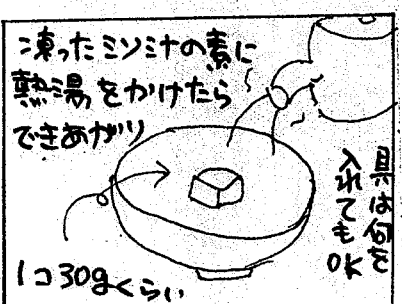 凍ったミソ汁の素に
熱湯をかけたら
できあがり
具は何を
入れても
OK
1コ30gくらい